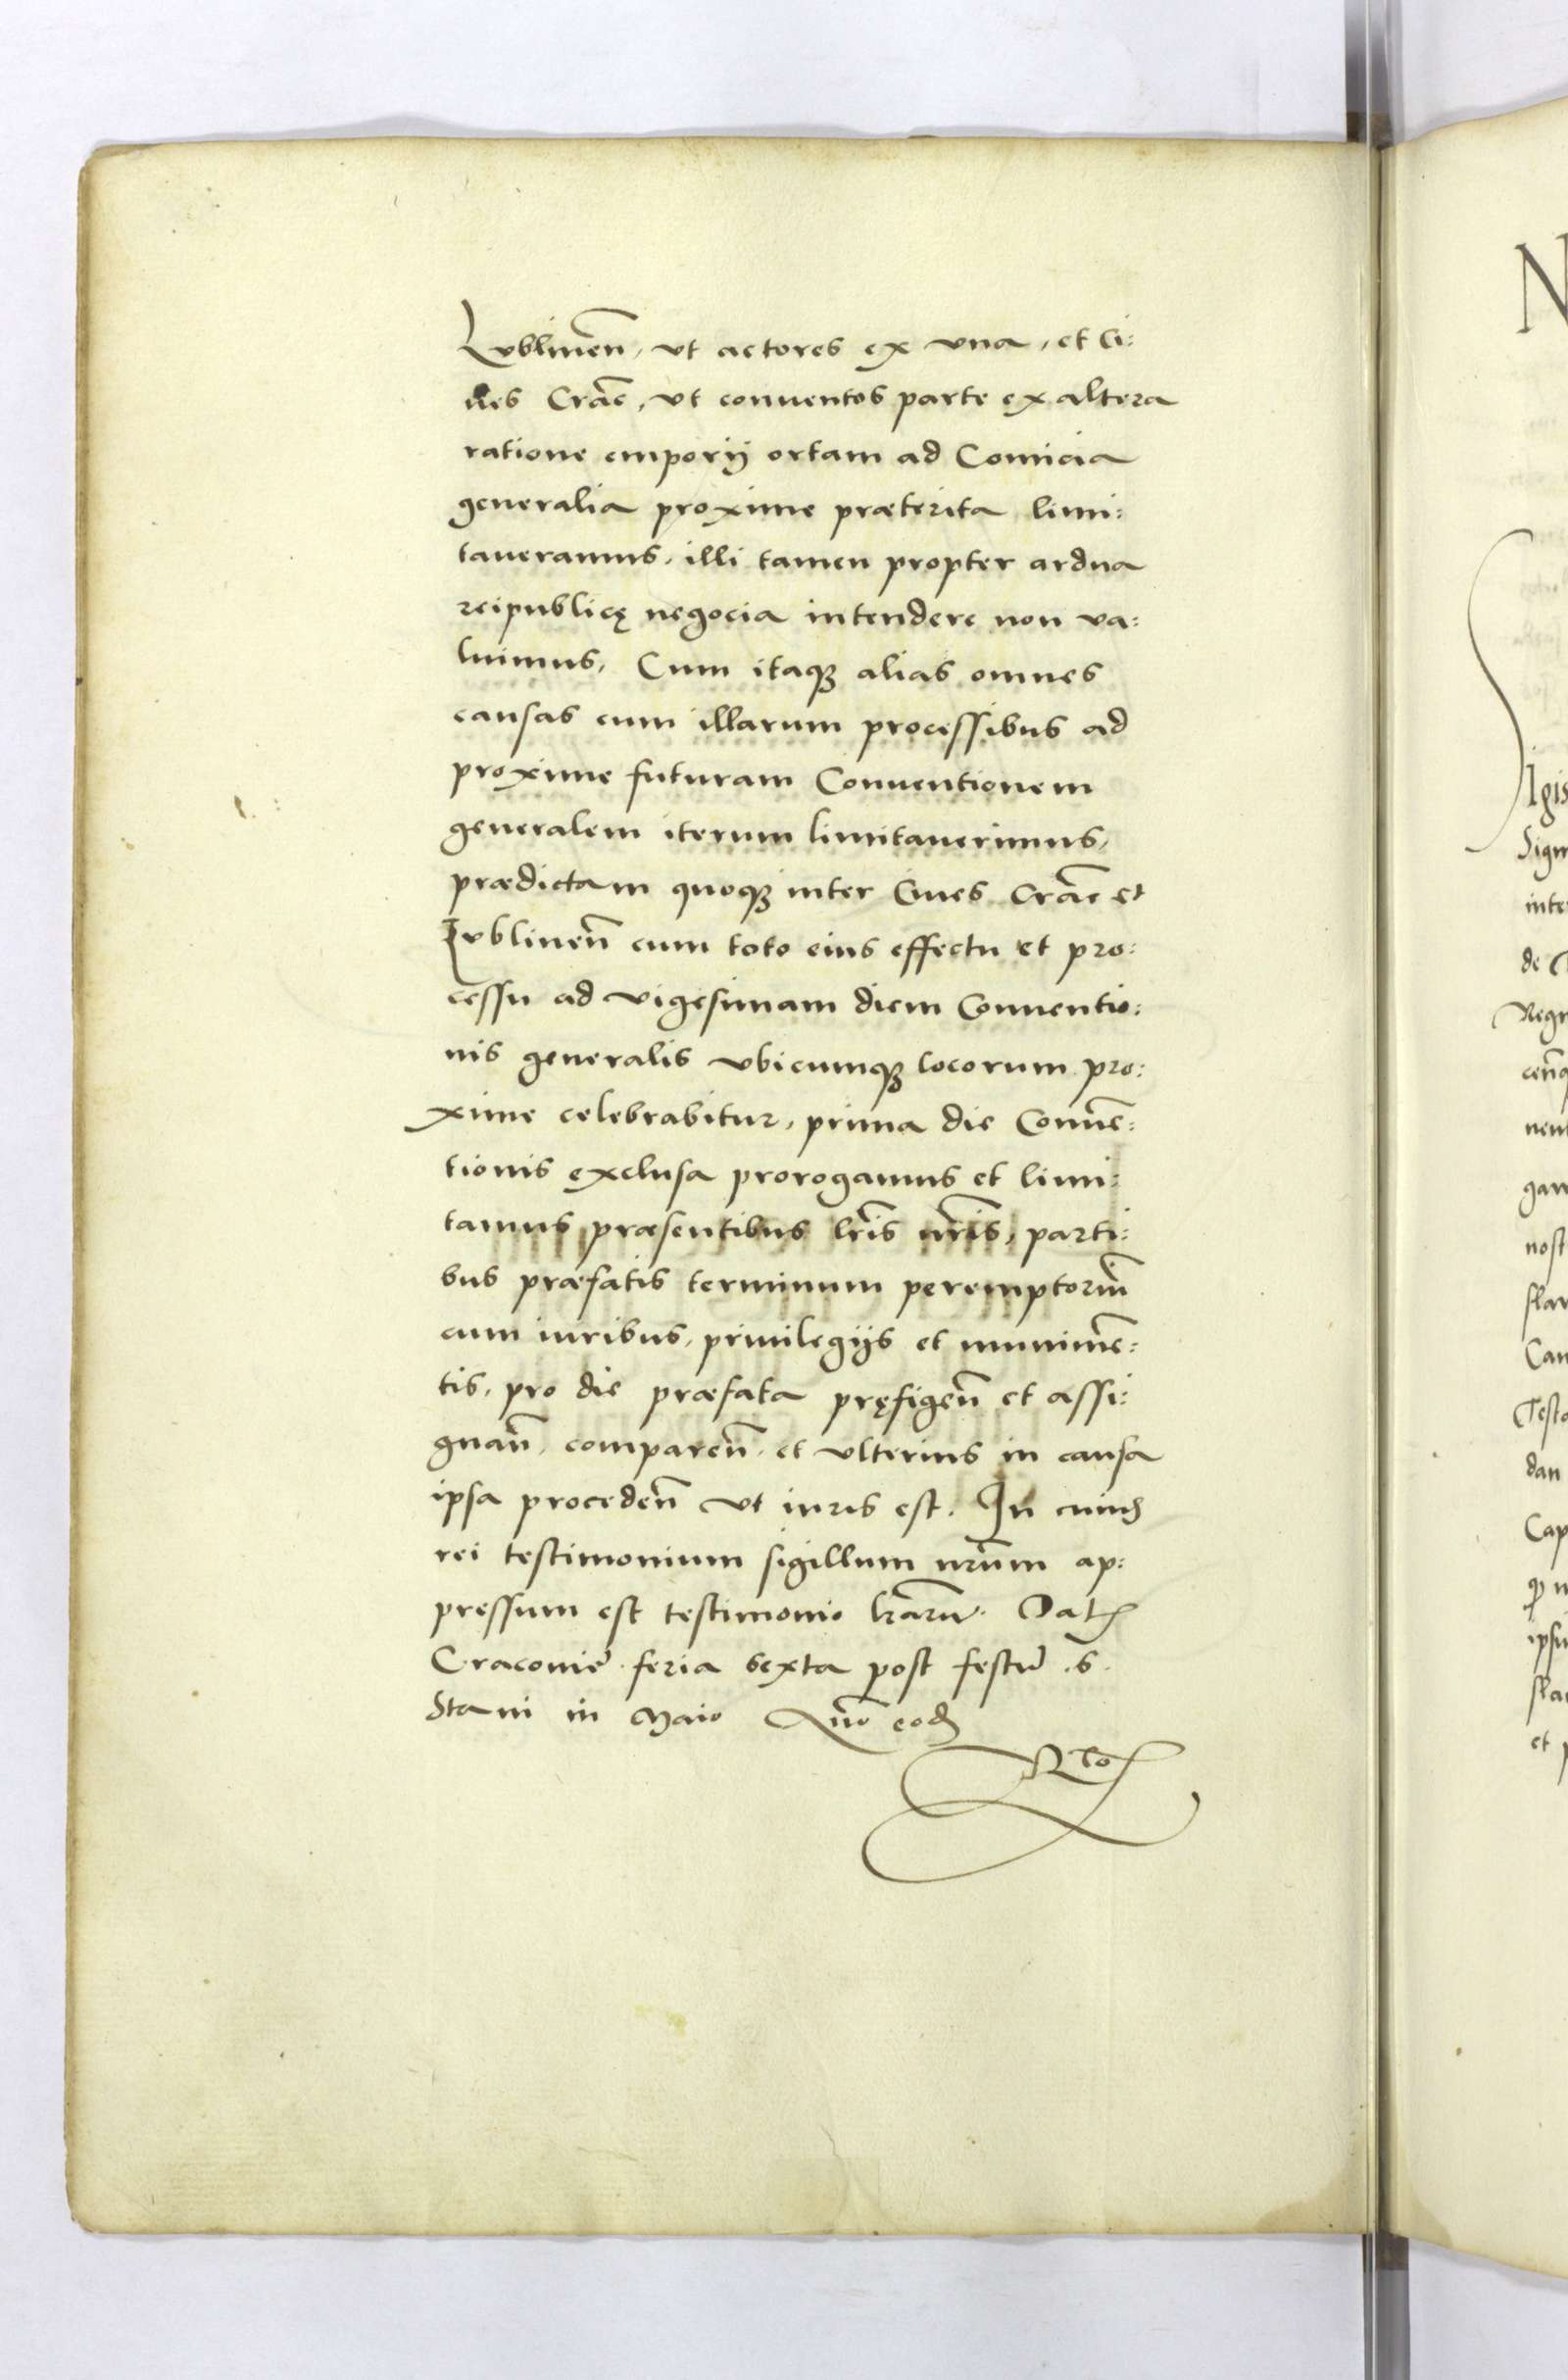 Lublinen̄, ut actores ex una, et Ci:
ues Crac̄, ut conuentos parte ex altera
ratione emporij ortam ad Comicia
generalia proxime præterita limi:
taueramus, illi tamen propter ardua
reipublicę negocia intendere non va:
luimus, Cum itaqꝫ alias omnes
causas cum illarum processibus ad
proxime futuram Conuentionem
generalem iterum limitauerimus,
prædictam quoqꝫ inter Ciues Crac̄ et
Lublinen̄ cum toto eius effectu et pro:
cessu ad vigesimam diem Conuentio:
nis generalis ubicumqꝫ locorum pro:
xime celebrabitur, prima die Conuē:
tionis exclusa prorogamus et limi:
tamus præsentibus lr̄is nr̄is, parti:
bus præfatis terminum peremptoriū
cum iuribus, priuilegijs et munimē:
tis, pro die præfata pręfigen̄ et assi:
gnan̄, comparen̄ et ulterius in causa
ipsa proceden̄ ut iuris est. In cuius
rei testimonium sigillum nr̄um ap:
pressum est testimonio lr̄arū. Dat
Cracouie feria sexta post festū .S.
Stani in Maio Anno eod